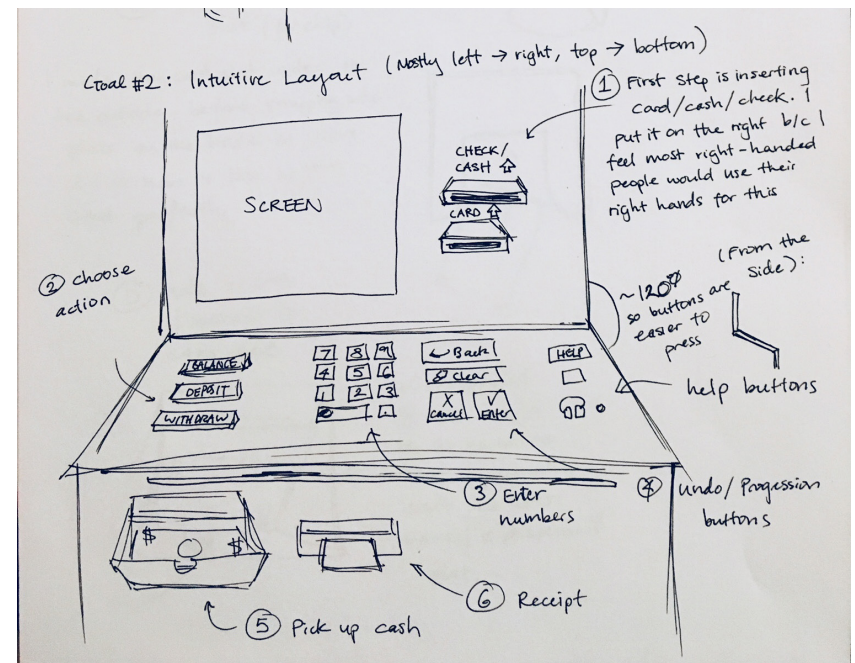 Goal #2: Intuitive Layout (Mostly left → right, top → bottom)
① First step is inserting
card/cash/check. I
put it on the right b/c I
feel most right-handed
people would use their
right hands for this
CHECK/
CASH ⇧
CARD ⇧
SCREEN
② choose
action
(From the
side):
~120°
so buttons are
easier to
press
BALANCE
DEPOSIT
WITHDRAW
7 8 9
4 5 6
1 2 3
0 .
Back
Clear
X
Cancel
✓
Enter
HELP
help buttons
③ Enter
numbers
④ Undo/Progession
buttons
$ $
⑤ Pick up cash
⑥ Receipt